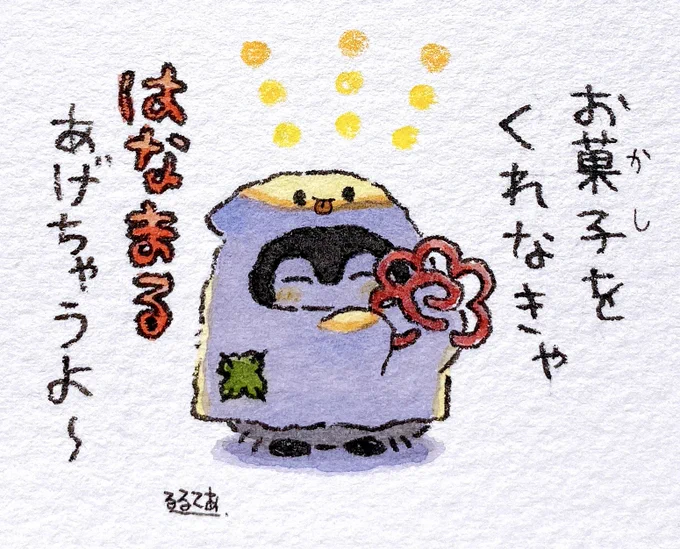 お菓子を
かし
くれなきゃ
はなまる
あげちゃうよ〜
るるてあ